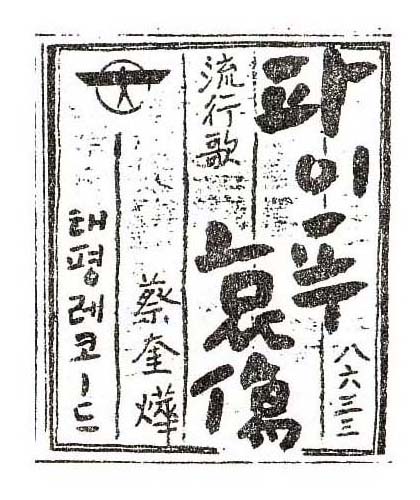 파이ー푸
八六三三
哀傷
流行歌
蔡奎燁
태평레코ー드